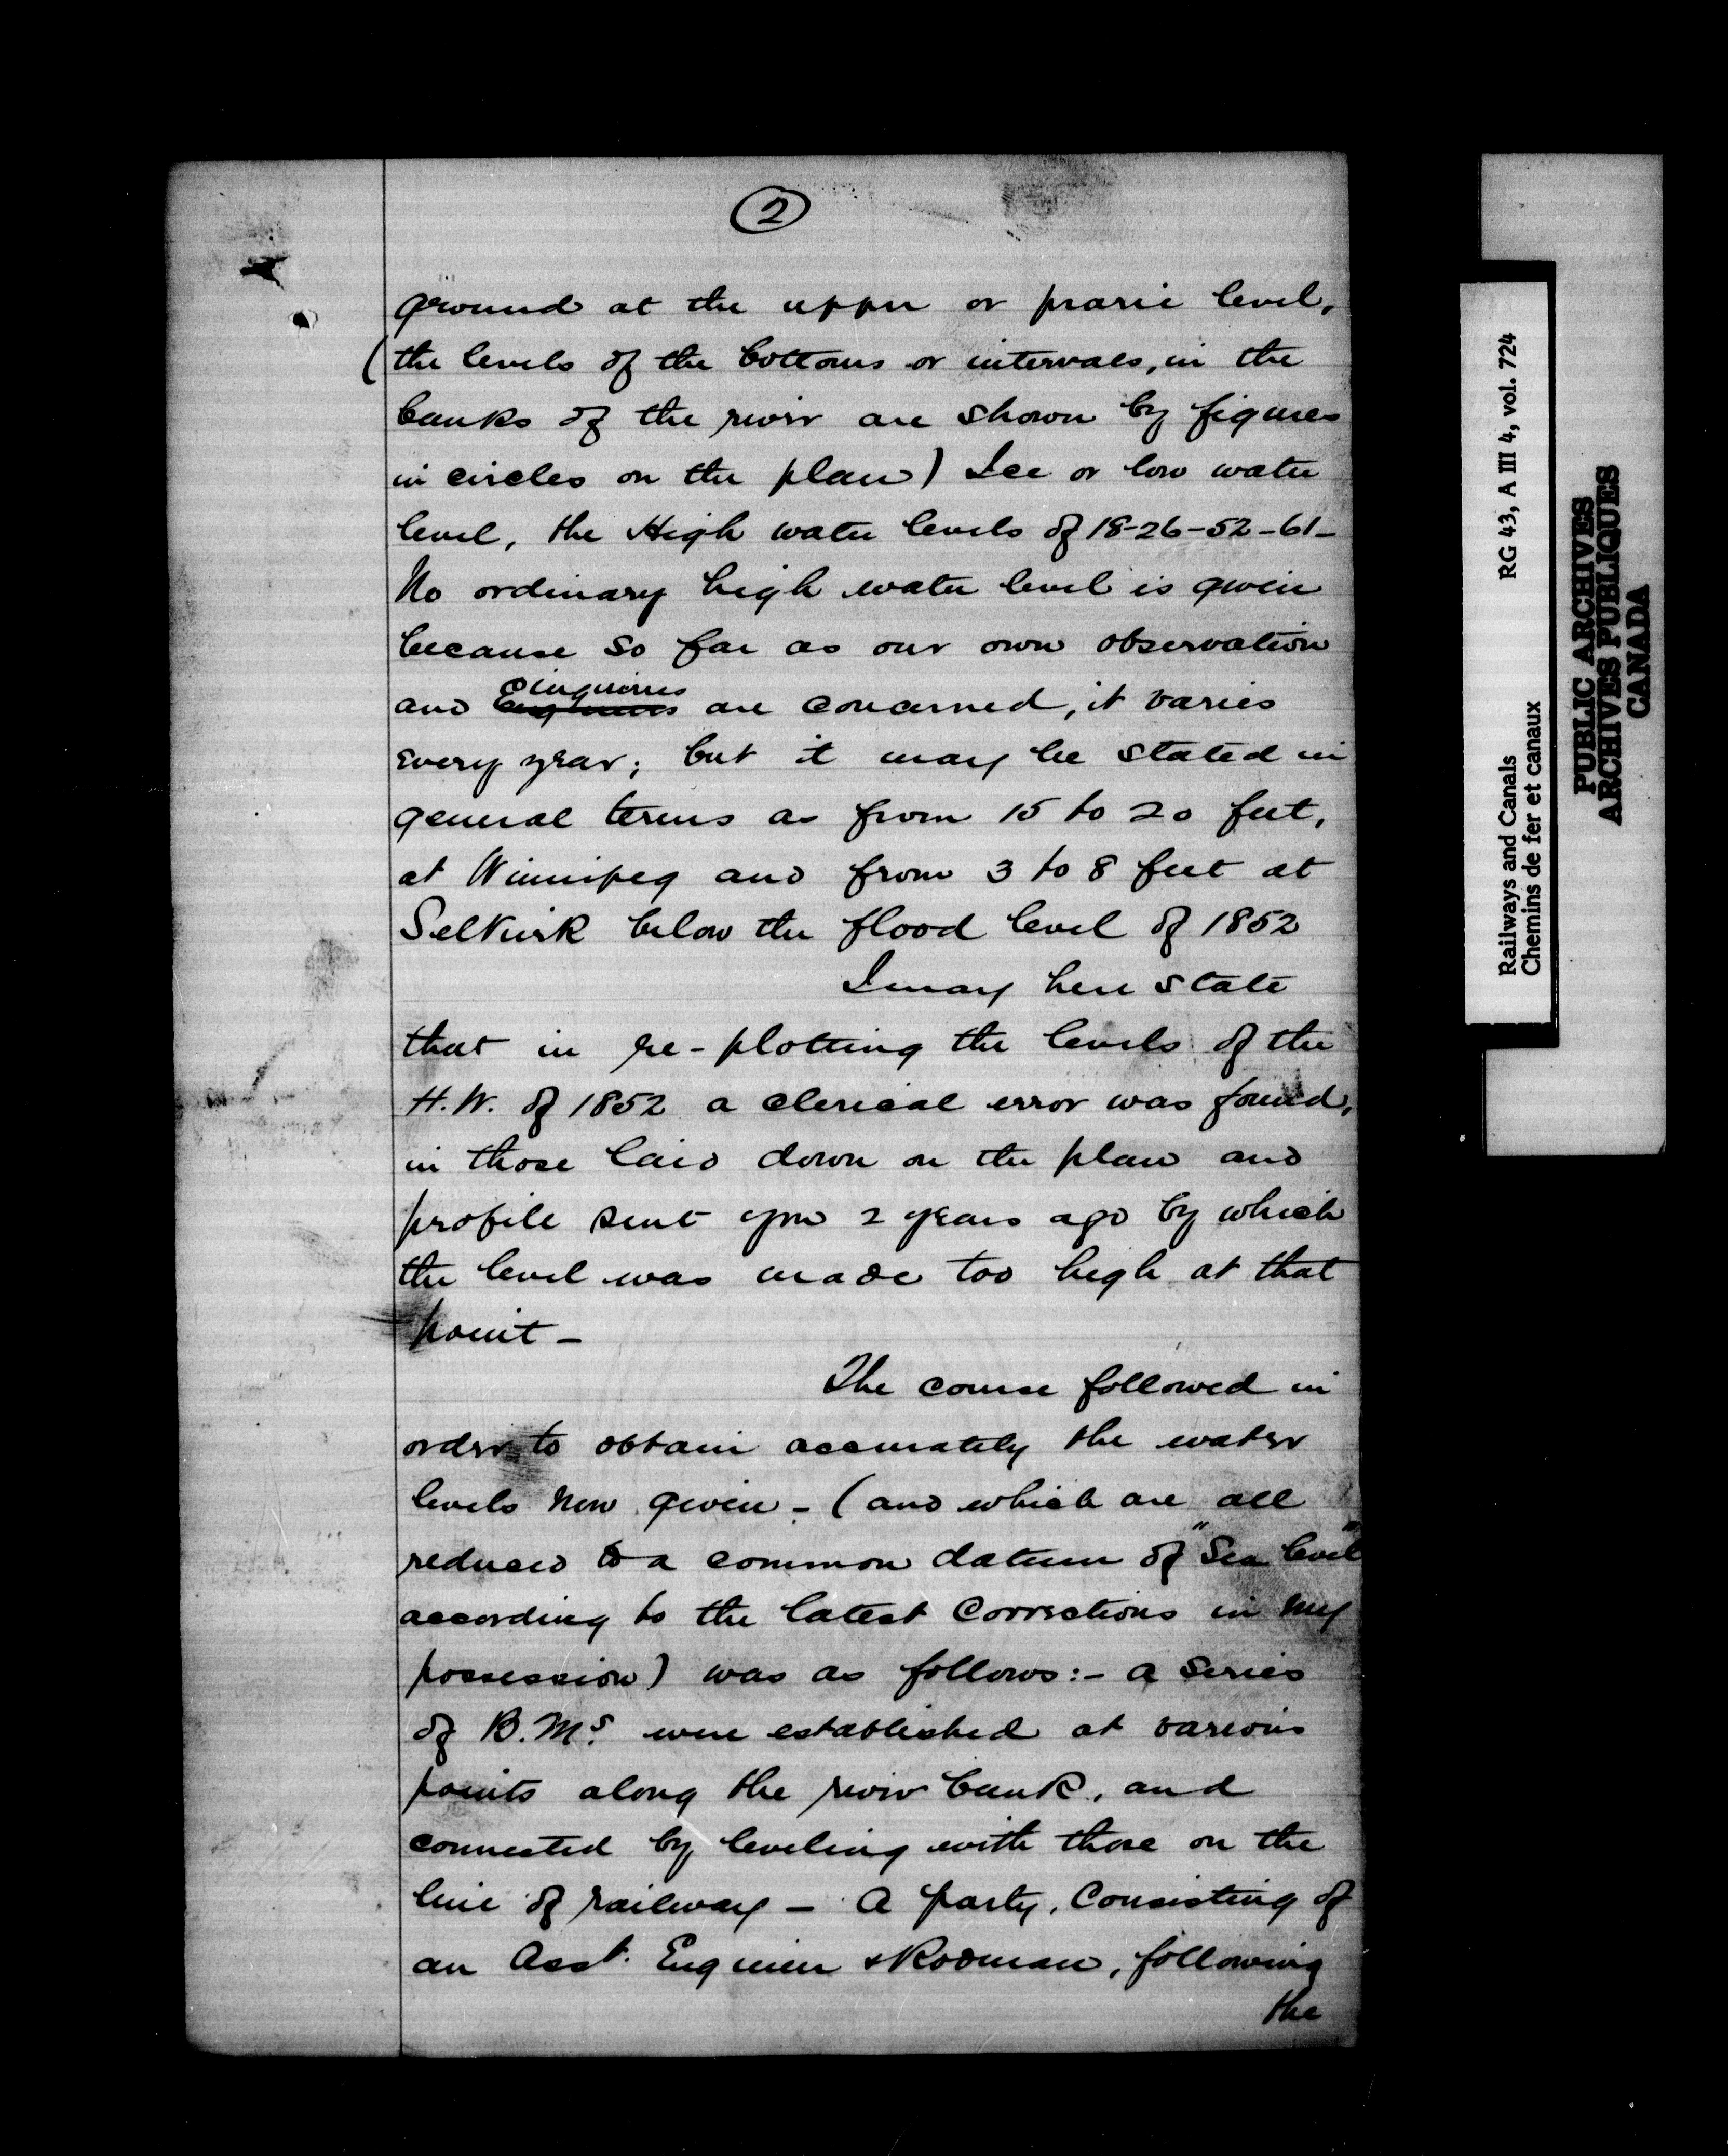 2
ground at the upper or prarie level,
(the levels of the bottoms or intervals, in the
banks of the river are shown by figures
in circles on the plan) Ice or low water
level, the High water levels of 18-26-52-61-
No ordinary high water level is given
because so far as our own observation
enquiries
and are concerned, it varies
every year; but it may be stated in
general terms as from 15 to 20 feet,
at Winnipeg and from 3 to 8 feet at
Selkirk below the flood level of 1852
I may here state
that in re-plotting the levels of the
H.W. of 1852 a clerical error was found,
in those laid down on the plan and
profile sent you 2 years ago by which
the level was made too high at that
point-
The course followed in
order to obtain accurately the water
levels now given - (and which are all
reduced to a common datum of "Sea level"
according to the latest corrections in my
possession) was as follows:- a series
of B.Ms. were established at various
points along the river bank, and
connected by leveling with those on the
line of railway - A party, Consisting of
an Asst. Engineer & Rodman, following
the
Railways and Canals RG 43, A III 4, vol. 724
Chemins de fer et canaux
PUBLIC ARCHIVES
ARCHIVES PUBLIQUES
CANADA